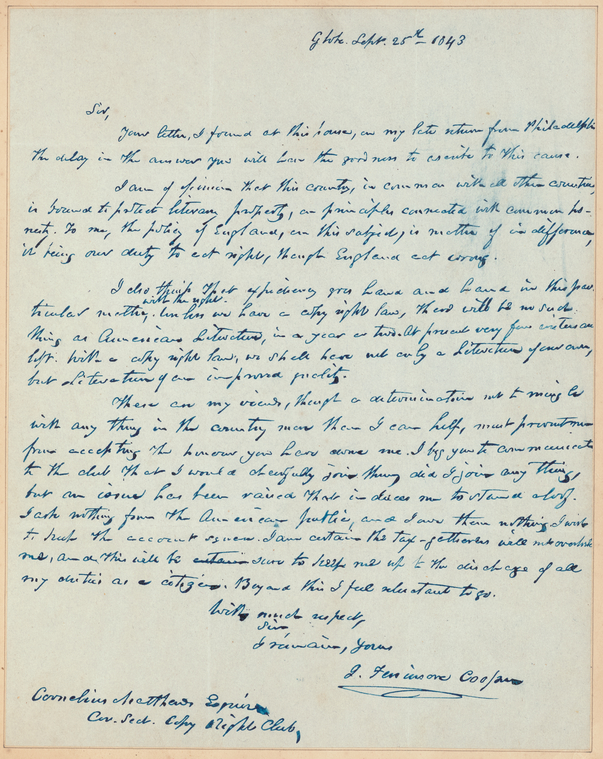 Globe. Sept. 25th 1843
Sir,
Your letter, I found at this house, on my late return from Philadelphia
the delay in the answer you will have the goodness to ascribe to this cause.
I am of opinion that this country, in common with all other countries,
is bound to protect literary property, on principles connected with common ho-
nesty. To me, the policy of England, on this subject, is matter of indifference,
it being our duty to act right, though England act wrong.
I also think that expediency goes hand and hand in this par-
with the right.
ticular matter. Unless we have a copy right law, there will be no such
thing as American Literature, in a year or two. At present very few writers are
left. With a copy right law, we shall have not only a Literature of our own,
but a Literature of an improved quality.
These are my views, though a determination not to mingle
with any thing in the country more than I can help, must prevent me
from accepting the honour you have done me. I beg you to communicate
to the club that I would cheerfully join them, did I join any thing,
but an issue has been raised that induces me to stand aloof.
I ask nothing from the American public, and I owe them nothing. I wish
to keep the account square. I am certain the tax-gatherers will not overlook
me, and this will be certain sure to keep me up to the discharge of all
my duties as a citizen. Beyond this I feel reluctant to go.
With much respect,
Sir
I remain, yours
J. Fenimore Cooper
Cornelius Matthews Esquire
Cor. Sect. Copy Right Club,